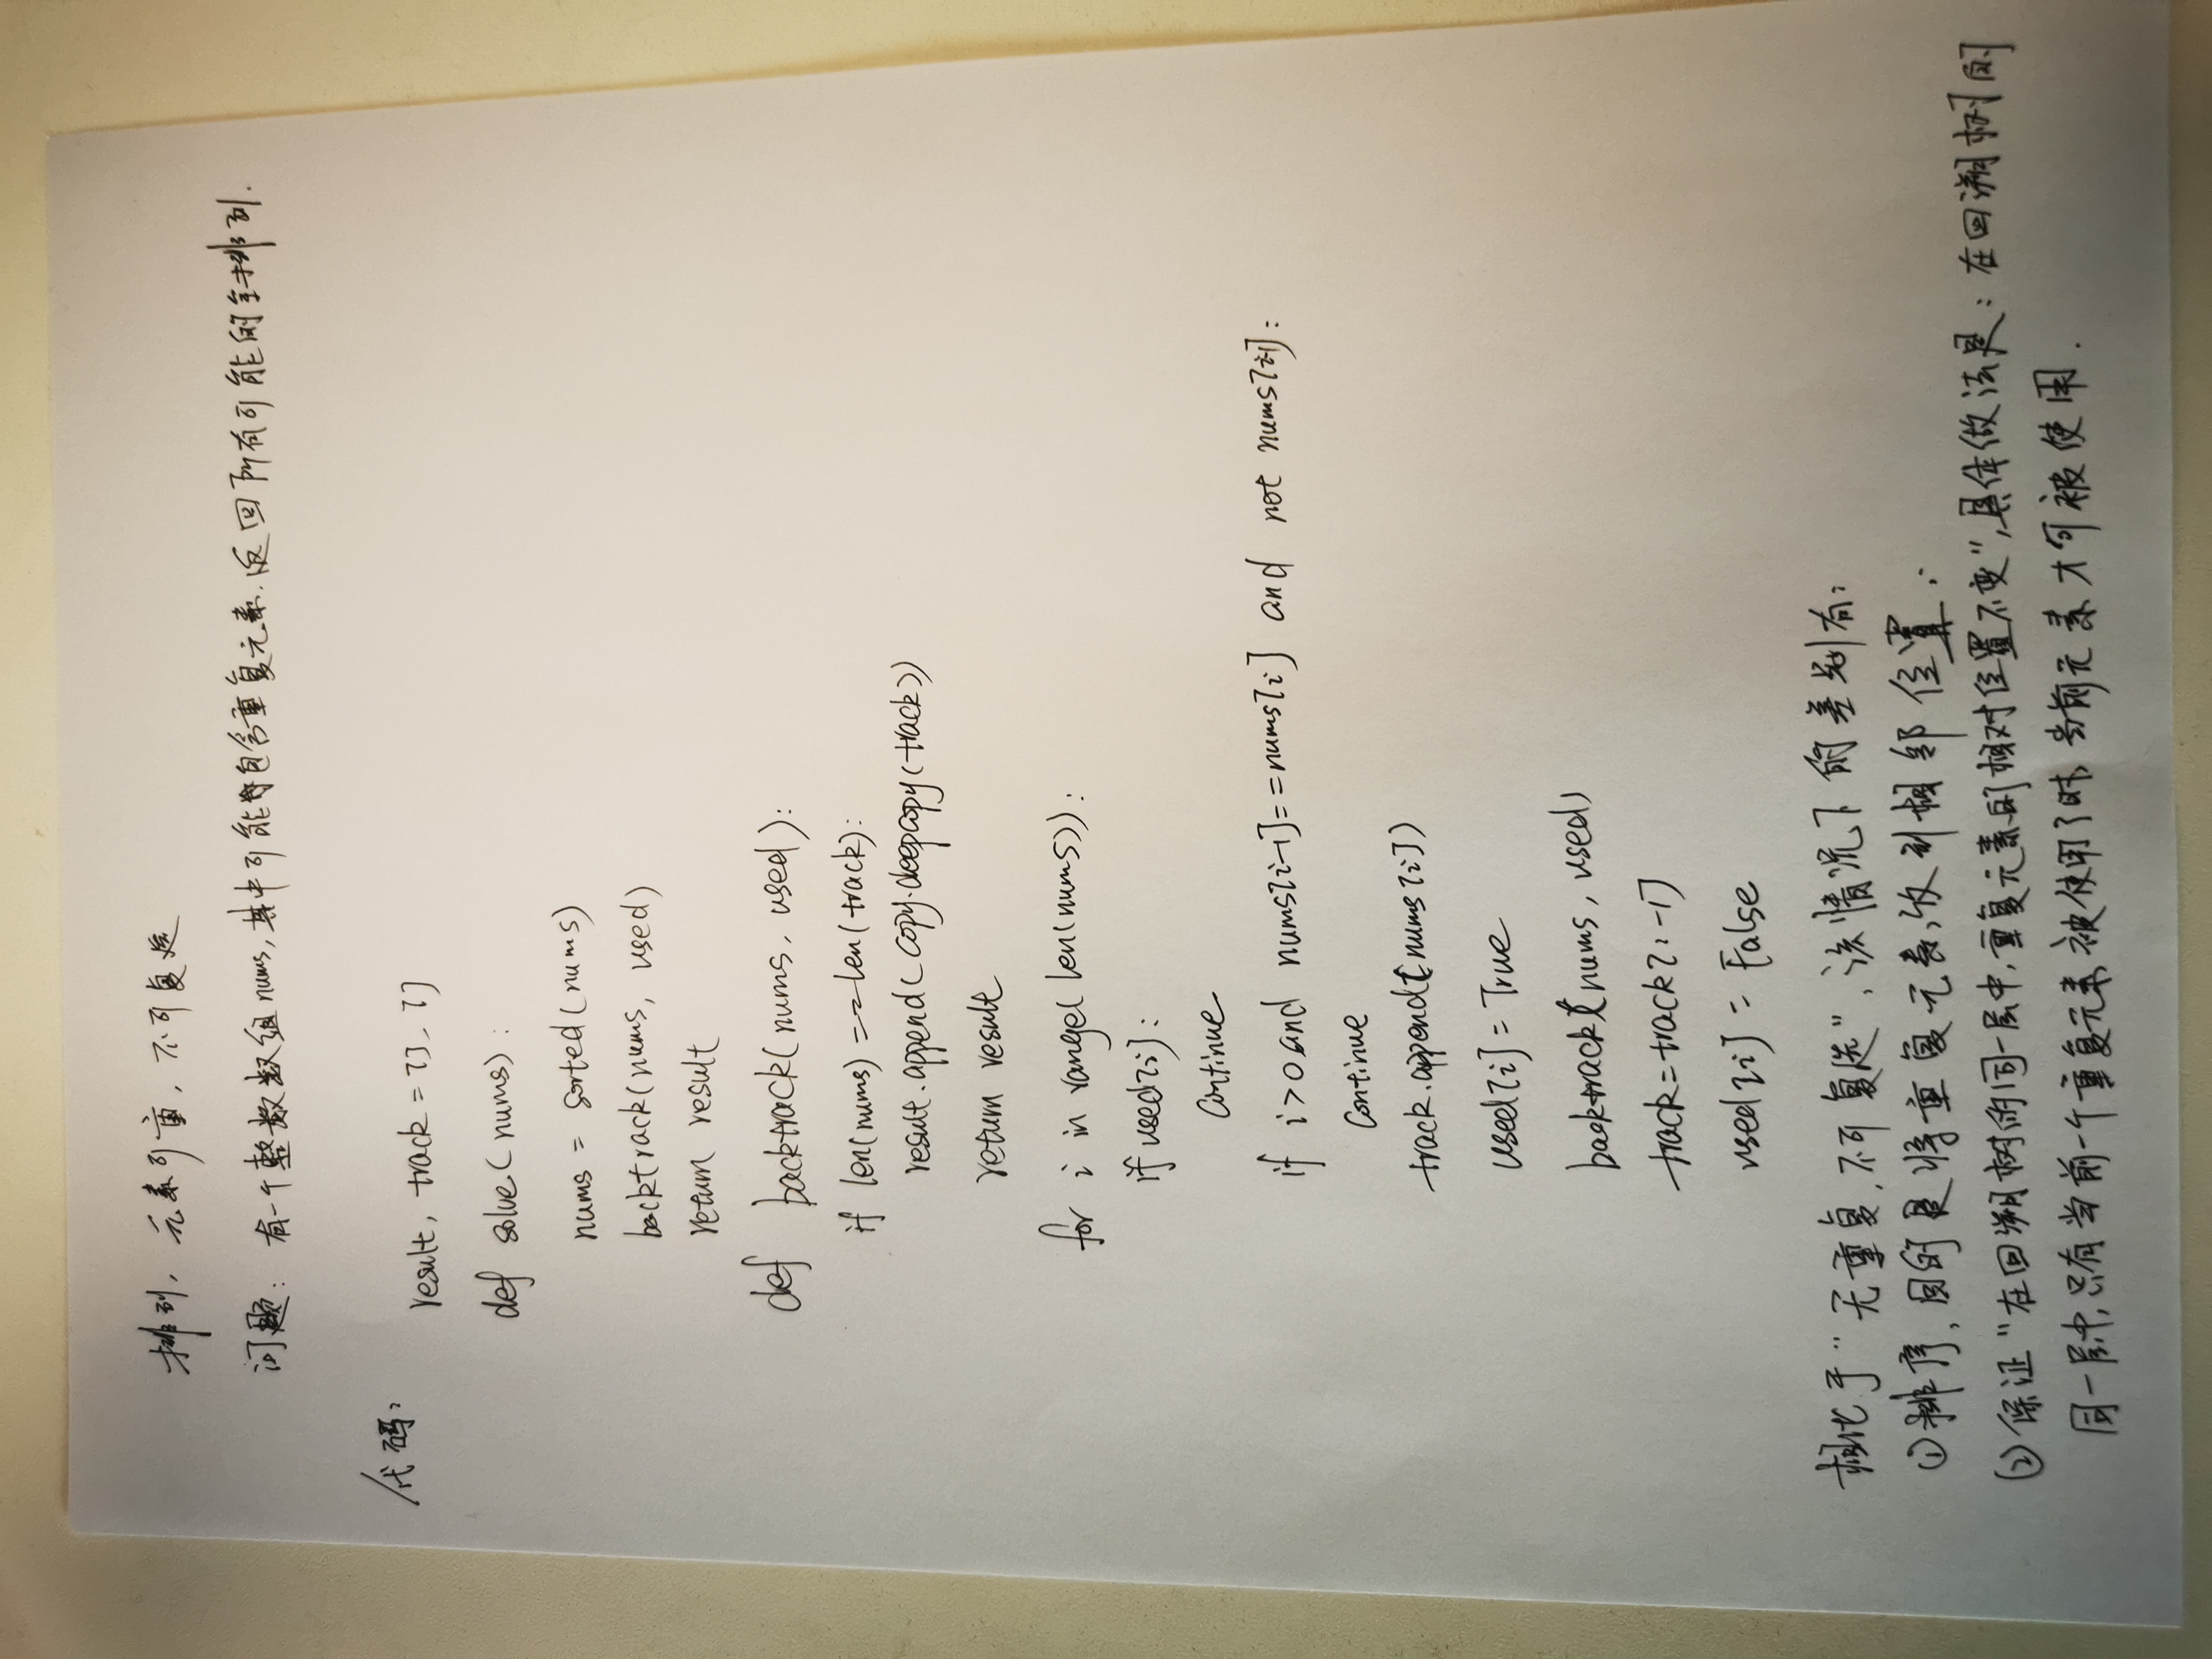 排列，元素可重，不可复选
问题：有一个整数数组nums，其中可能包含重复元素.返回所有可能的全排列.
代码：
result, track = [], []
def solve(nums):
nums = sorted(nums)
backtrack(nums, used)
return result
def backtrack(nums, used):
if len(nums) == len(track):
result.append(copy.deepcopy(track))
return result
for i in range(len(nums)):
if used[i]:
continue
if i>0 and nums[i-1]==nums[i] and not nums[i-1]:
continue
track.append(nums[i])
used[i] = True
backtrack(nums, used)
track=track[:-1]
used[i] = False
相比于“无重复，不可复选”，该情况下的差别有：
①排序，目的是将重复元素放到相邻位置.
②保证“在回溯树的同一层中，重复元素的相对位置不变”，具体做法是：在回溯树的
同一层中，只有当前一个重复元素被使用了时，当前元素才可被使用.